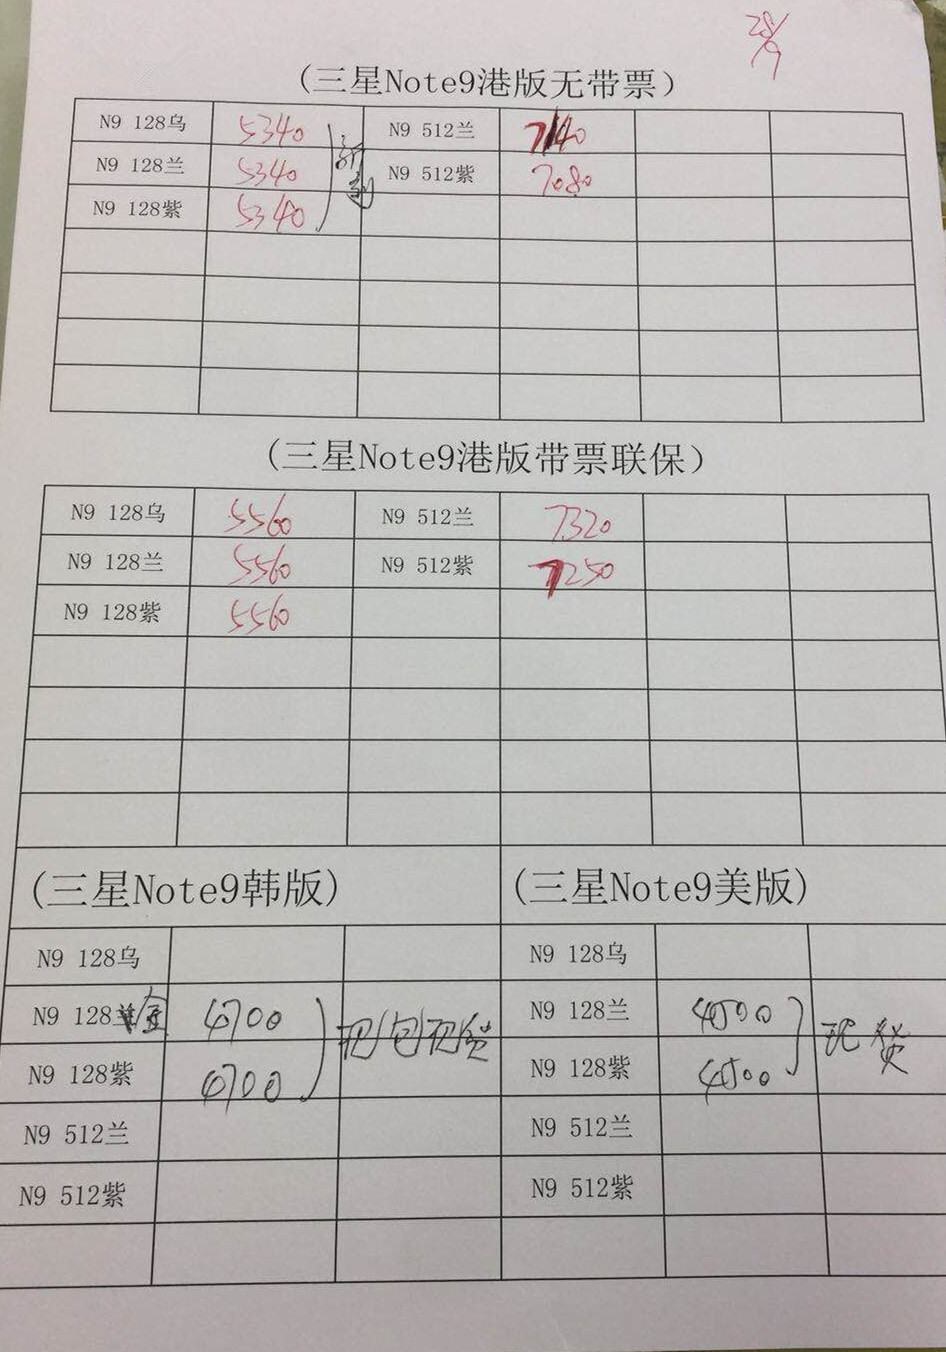 28/9
(三星Note9港版无带票)
N9 128乌 5340 N9 512兰 7140
N9 128兰 5340 N9 512紫 7080
N9 128紫 5340
(三星Note9港版带票联保)
N9 128乌 5560 N9 512兰 7320
N9 128兰 5560 N9 512紫 7250
N9 128紫 5560
(三星Note9韩版) (三星Note9美版)
N9 128乌 N9 128乌
N9 128金 4700 N9 128兰 4500
现货
N9 128紫 4700 N9 128紫 4500
N9 512兰 N9 512兰
N9 512紫 N9 512紫